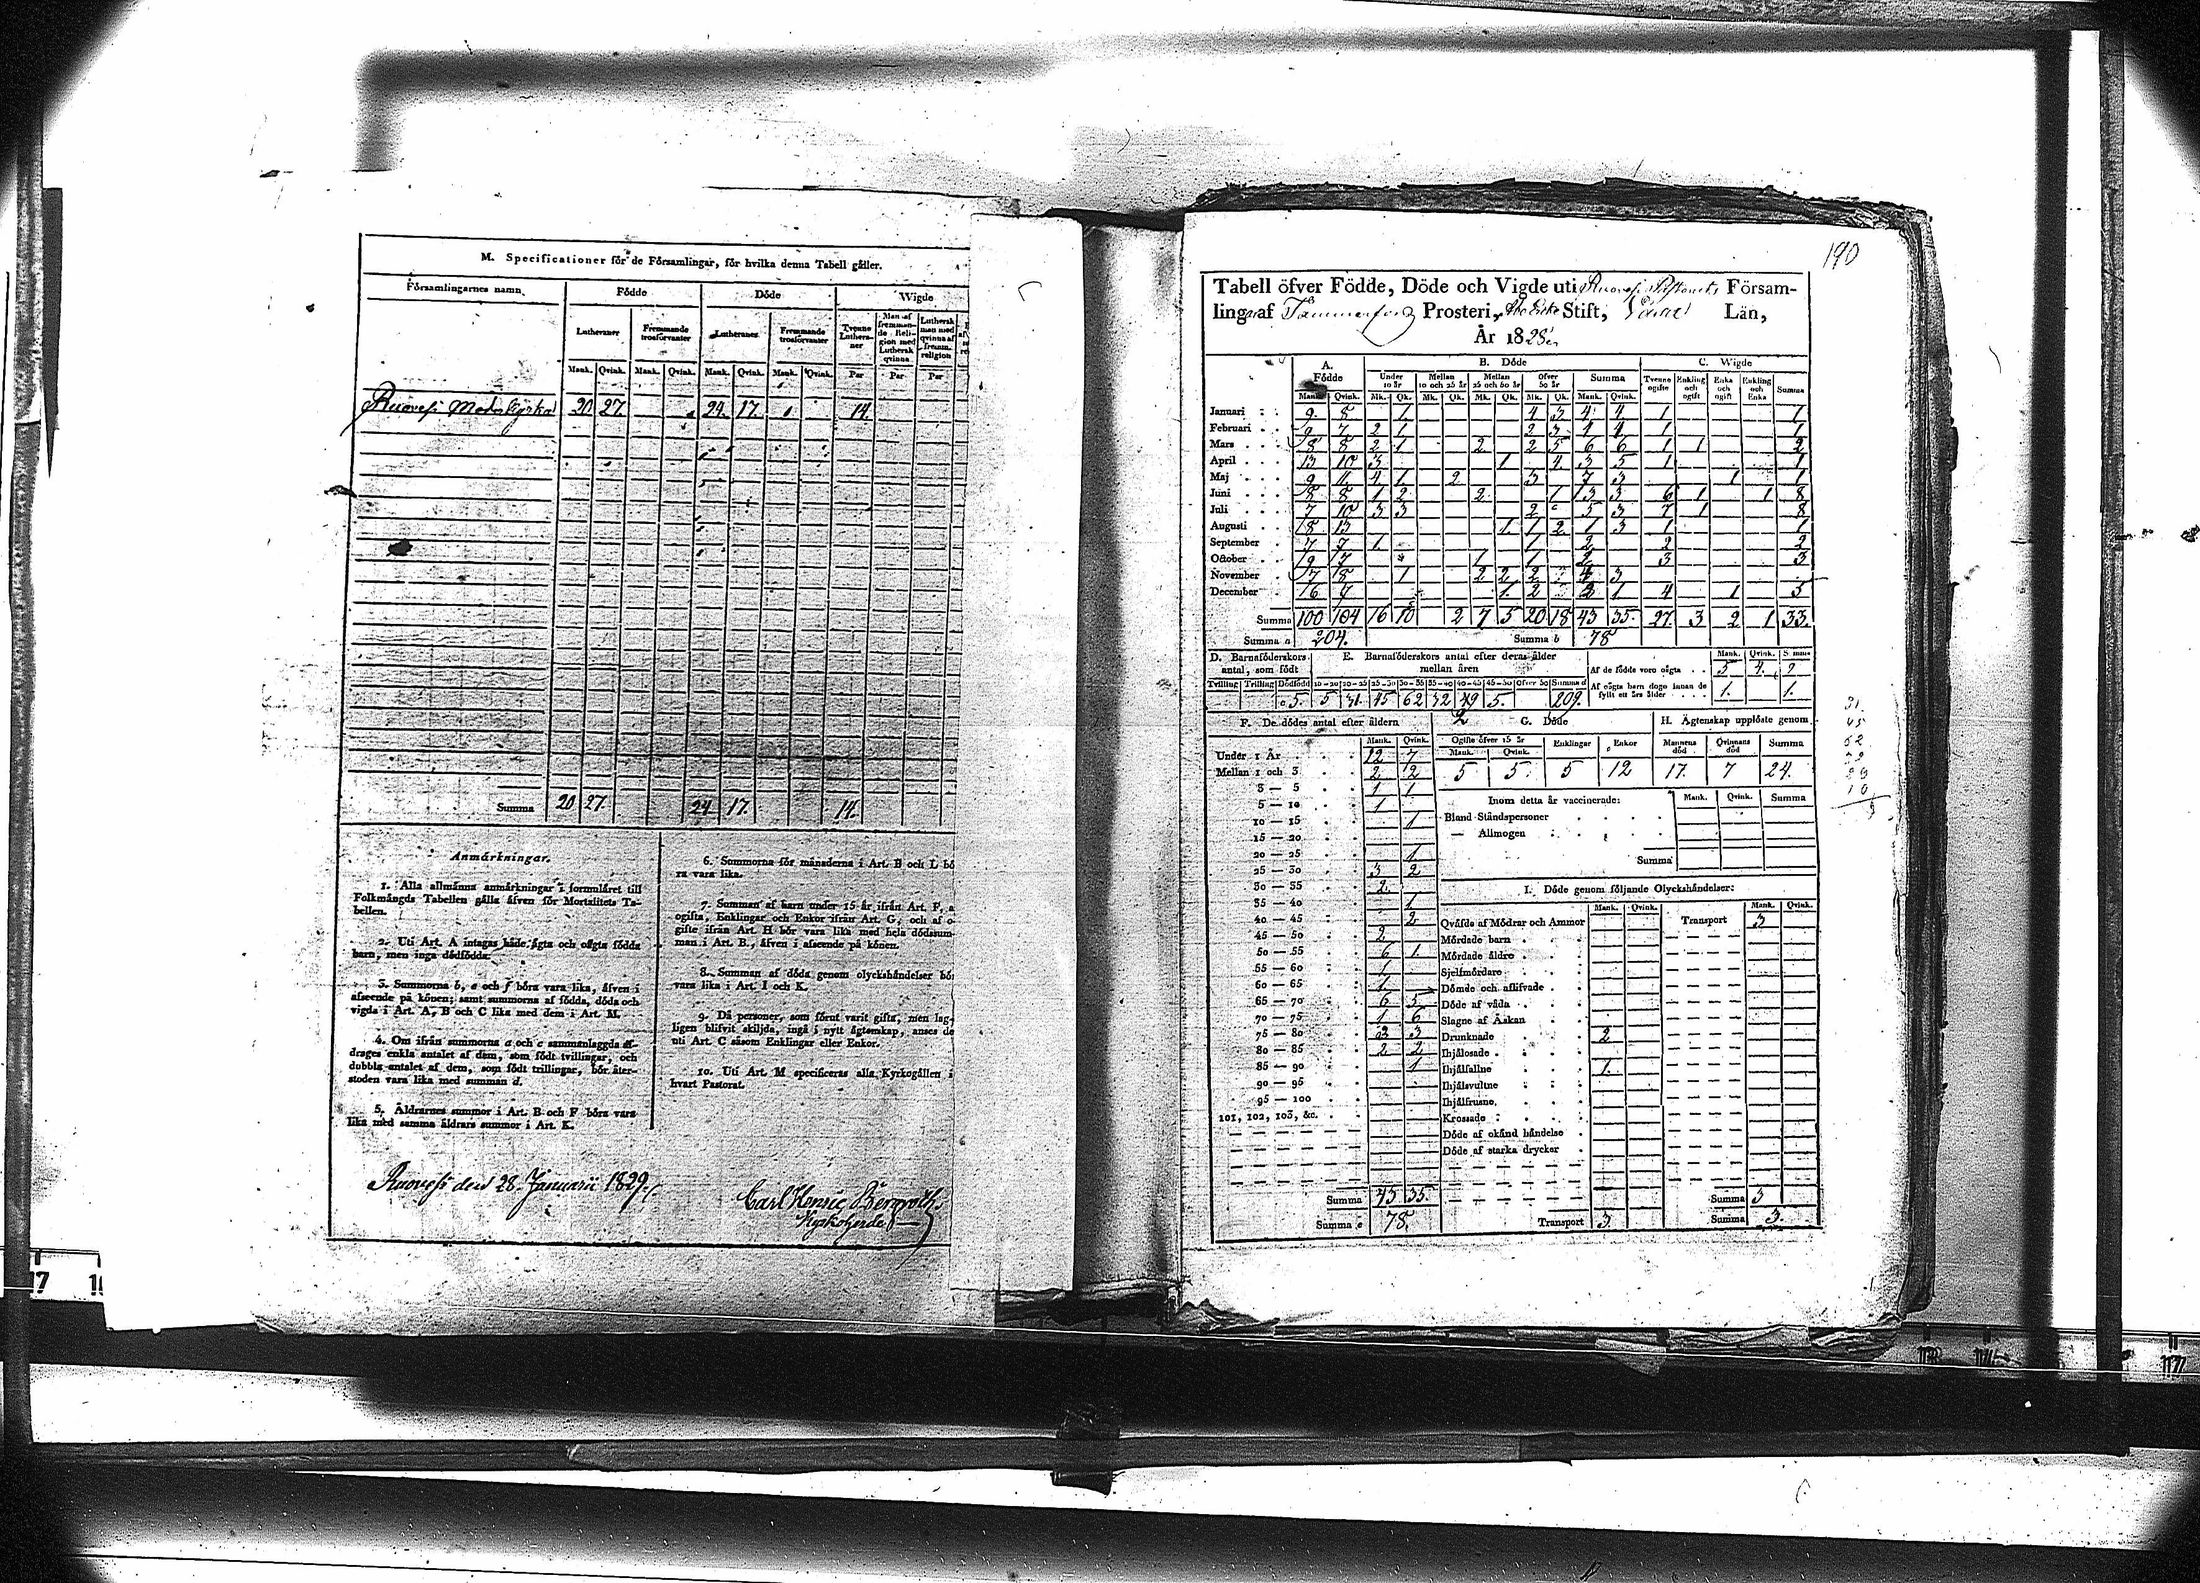 M. Specificationer för de Församlingar, för hvilka denna Tabell gäller.
Församlingarnes namn. Födde Döde Wigde
Lutheraner Fremmande trosförvanter Lutheraner Fremmande trosförvanter Tvenne Lutheraner Man af fremmande Religion med Luthersk qvinna Luthersk man med qvinna af fremm. religion
Mank. Qvink. Mank. Qvink. Mank. Qvink. Mank. Qvink. Par Par Par
Ruovesi Moderkyrka 20 27. 24. 17. 14.
Summa 20 27. 24 17. 14.
Anmärkningar.
1. Alla allmänna anmärkningar i formuläret till
Folkmängds Tabellen gälla äfven för Mortalitets Ta-
bellen.
2. Uti Art. A intagas både ägta och oägta födda
barn, men inga dödfödda.
3. Summorna b, e och f böra vara lika, äfven i
afseende på könen; samt summorna af födda, döda och
vigda i Art. A, B och C lika med dem i Art. M.
4. Om ifrån summorna a och c sammanlaggda af-
drages enkla antalet af dem, som födt tvillingar, och
dubbla antalet af dem, som födt trillingar, bör åter-
stoden vara lika med summan d.
5. Åldrarnes summor i Art. B och F böra vara
lika med samma åldrars summor i Art. K.
6. Summorna för månaderna i Art. B och L bö
ra vara lika.
7. Summan af barn under 15 år ifrån Art. F, a
ogifta, Enklingar och Enkor ifrån Art. G, och af o-
gifte ifrån Art. H bör vara lika med hela dödssum-
man i Art. B., äfven i afseende på könen.
8. Summan af döda genom olyckshändelser bör
vara lika i Art. I och K.
9. Då personer, som förut varit gifta, men lag-
ligen blifvit skiljda, ingå i nytt ägtenskap, anses de
uti Art. C såsom Enklingar eller Enkor.
10. Uti Art. M specificeras alla Kyrkogällen i
hvart Pastorat.
Ruovesi den 28. Januarii 1829.
Carl Henric Bergroth
Kyrkoherde
190
Tabell öfver Födde, Döde och Vigde uti Ruovesi Församlingar af Tammerfors Prosteri, Åbo Stift, Län,
År 1828.
A. Födde B. Döde C. Wigde
Under 10 år Mellan 10 och 25 år Mellan 25 och 50 år Öfver 50 år Summa Tvenne ogifte Enkling och ogift Enka och ogift Enkling och Enka Summa
Mank. Qvink. Mk. Qk. Mk. Qk. Mk. Qk. Mk. Qk. Mank. Qvink.
Januari 9. 8 1 4 3 4 4 1 1
Februari 9 7 2 1 2 3 4 4 1 1
Mars 8 8 2 1 2 2 5 6 6 1 1 2
April 13 10 3 1 4 3 5 1 1
Maj 9 11 4 1 2 3 7 3 1 1
Juni 8 8 1 2 2 1 3 3 6 1 1 8
Juli 7 10 3 3 2 5 3 7 1 8
Augusti 13 1 1 2 1 3 1 1
September 7 7 1 1 2 2 2
October 9 7 1 1 2 3 3
November 7 8 1 2 2 2 4 3
December 7 1 2 1 4 1 5
Summa 100 104 16 10 2 7 5 20 18 43 35. 27. 3 2 1 33.
Summa a 204. Summa b 78
D. Barnaföderskors antal, som födt E. Barnaföderskors antal efter deras ålder mellan åren
Tvilling Trilling Dödfödd 10-20 20-25 25-30 30-35 35-40 40-45 45-50 Öfver 50 Summa d
5. 5 31. 45 62 32 29 5. 209.
Mank. Qvink. Summa
Af de födde voro oägta 5 4.
Af oägta barn dogo innan de fyllt ett års ålder 1. 1.
F. De dödes antal efter åldern
Mank. Qvink.
Under 1 År 12 7
Mellan 1 och 3 2 2
3 — 5 1 1
5 — 10 1
10 — 15 1
15 — 20
20 — 25 1
25 — 30 3 2
30 — 35 2
35 — 40 1
40 — 45 2
45 — 50 2
50 — 55 6 1.
55 — 60 1
60 — 65 1
65 — 70 6 5
70 — 75 1 6
75 — 80 3 3
80 — 85 2 2
85 — 90 1
90 — 95
95 — 100
101, 102, 103, &c.
Summa 43 35
Summa e 78.
G. Döde
Ogifte öfver 15 år Enklingar Enkor
Mank. Qvink.
5 5 5 12
H. Ägtenskap upplöste genom
Mannens död Qvinnans död Summa
17. 7 24.
Inom detta år vaccinerade: Mank. Qvink. Summa
Bland Ståndspersoner
— Allmogen
Summa
I. Döde genom följande Olyckshändelser:
Mank. Qvink. Mank. Qvink.
Qväfde af Mödrar och Ammor Transport 3
Mördade barn
Mördade äldre
Sjelfmördare
Dömde och aflifvade
Döde af våda
Slagne af Åskan
Drunknade 2
Ihjälosade
Ihjälfallne 1.
Ihjälsvultne
Ihjälfrusne
Krossade
Döde af okänd händelse
Döde af starka drycker
Summa 3
Transport 3 Summa 3.